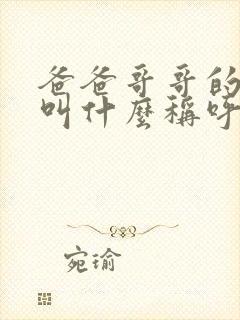 爸爸哥哥的
叫什麼稱呼
宛瑜